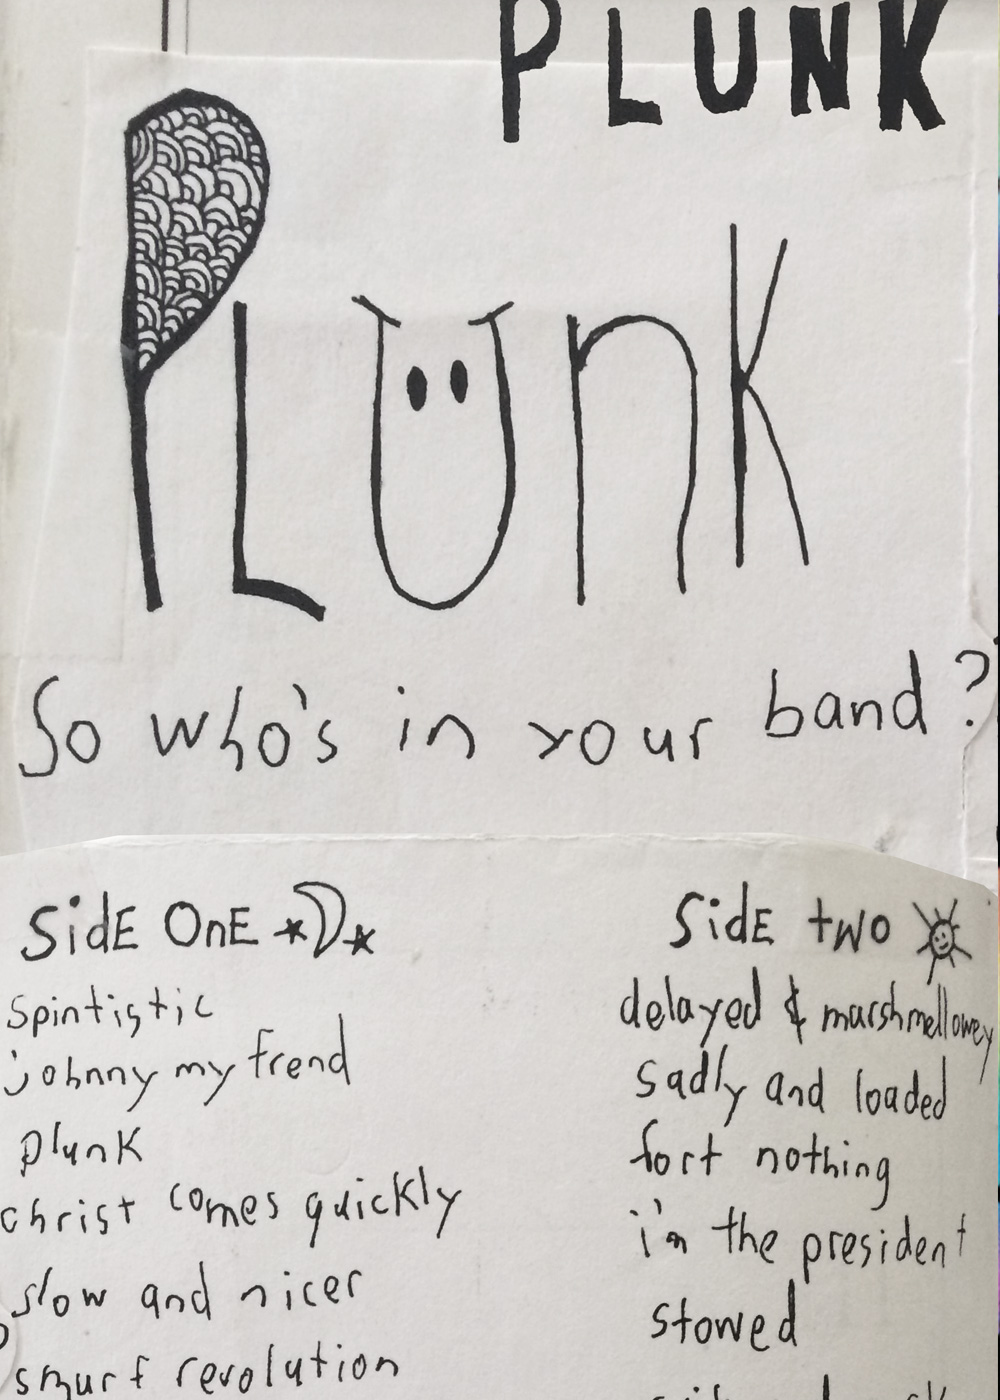 PLUNK
PLUnK
So who's in your band?
SidE OnE
spintistic
johnny my frend
plunk
christ comes quickly
slow and nicer
smurf revolution
SidE two
delayed & marshmellowey
sadly and loaded
fort nothing
i'm the president
stowed